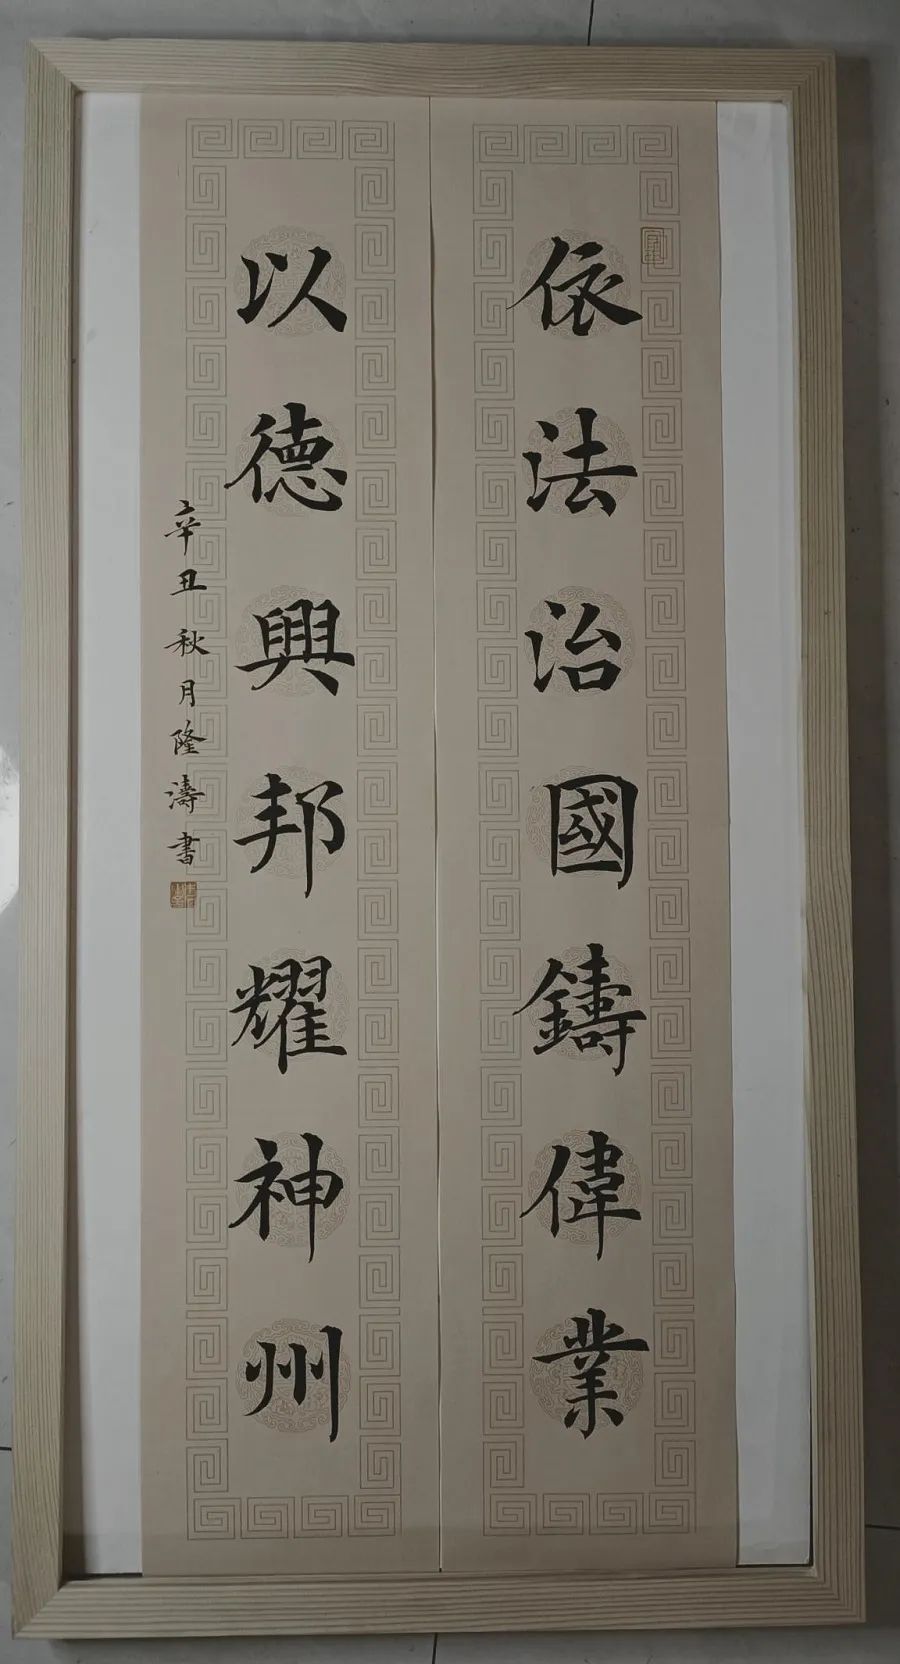 依法治國鑄偉業
以德興邦耀神州
辛丑秋月隆濤書